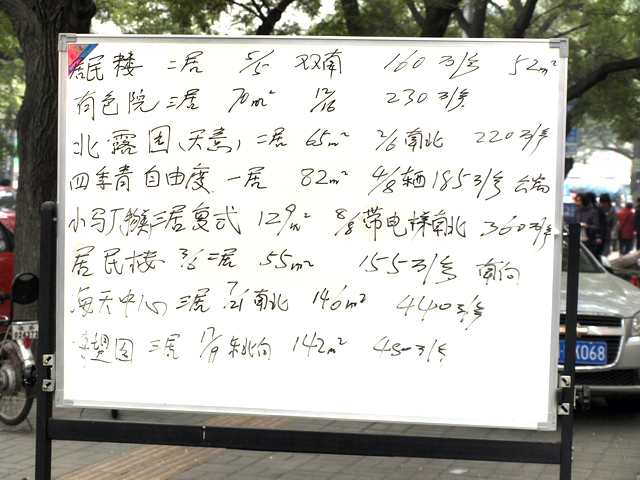 居民楼 二居 5/5 双南 160万/售 52m²
有色院 三居 70m² 12/16 230万/售
北露园(天意) 二居 65m² 2/6 南北 220万/售
四季青 自由度 一居 82m² 4/8 185万/售
小马厂 三居复式 129m² 8/8 带电梯南北 360万/售
居民楼 二居 55m² 155万/售 南向
每天中心 三居 7/21 南北 146m² 440万/售
望园 三居 17/19 向 142m² 450万/售
K068